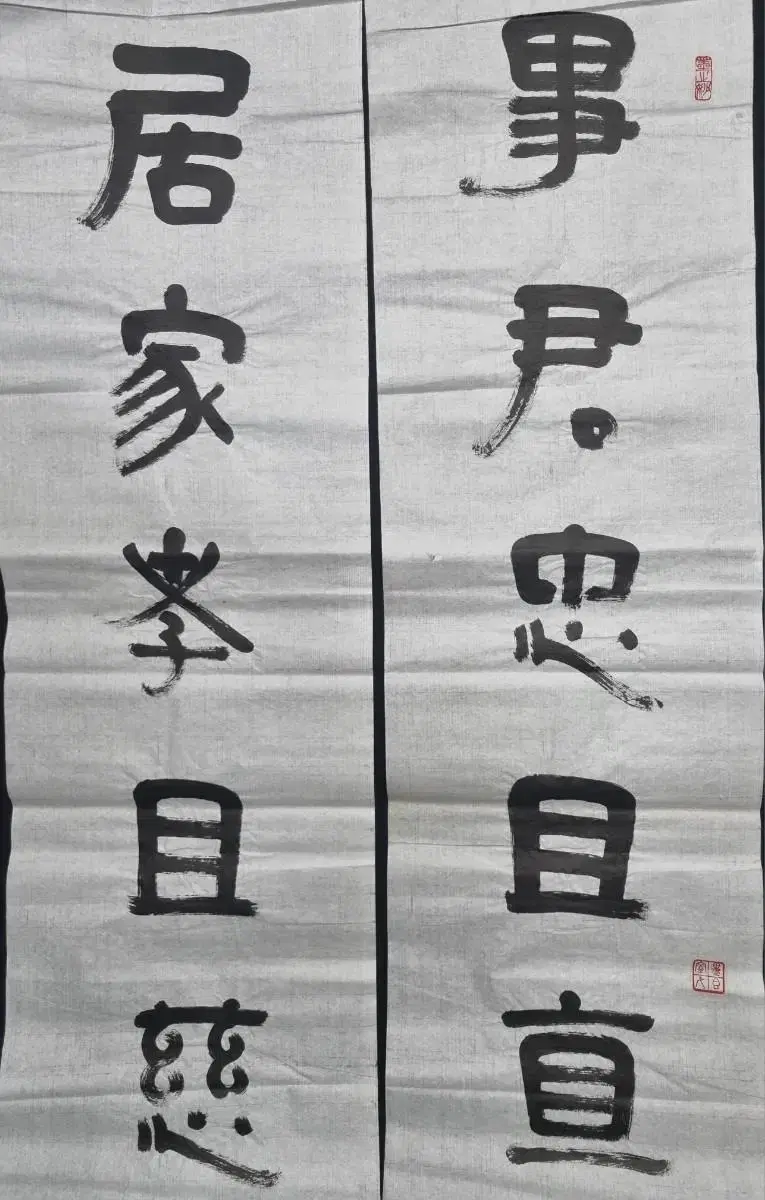 事君忠且直
居家孝且慈